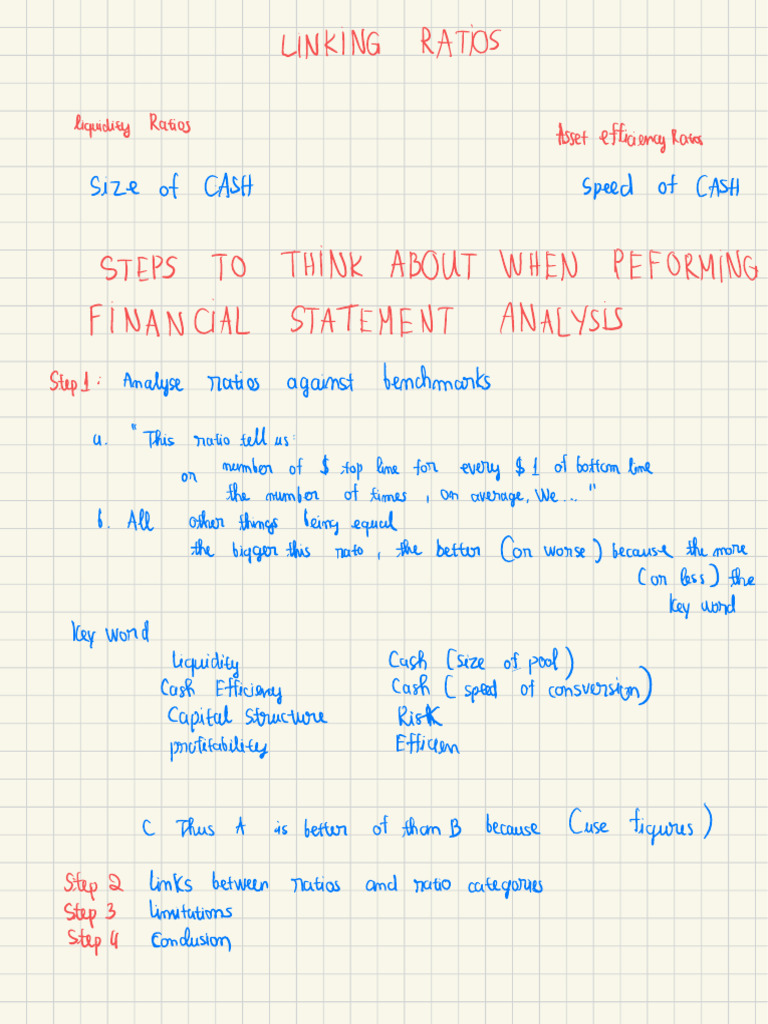 LINKING RATIOS
liquidity Ratios
Asset efficiency Ratios
Size of CASH
Speed of CASH
STEPS TO THINK ABOUT WHEN PEFORMING
FINANCIAL STATEMENT ANALYSIS
Step 1: Analyse ratios against benchmarks
a. "This ratio tell us:
number of $ top line for every $1 of bottom line
or
the number of times, on average, we..."
b. All other things being equal
the bigger this rato, the better (or worse) because the more
(or less) the
key word
Key word
liquidity Cash (size of pool)
Cash Efficiency Cash (speed of consversion)
Capital Structure Risk
profitability Efficien
C Thus A is better of than B because (use figures)
Step 2 links between ratios and ratio categories
Step 3 limitations
Step 4 Conclusion